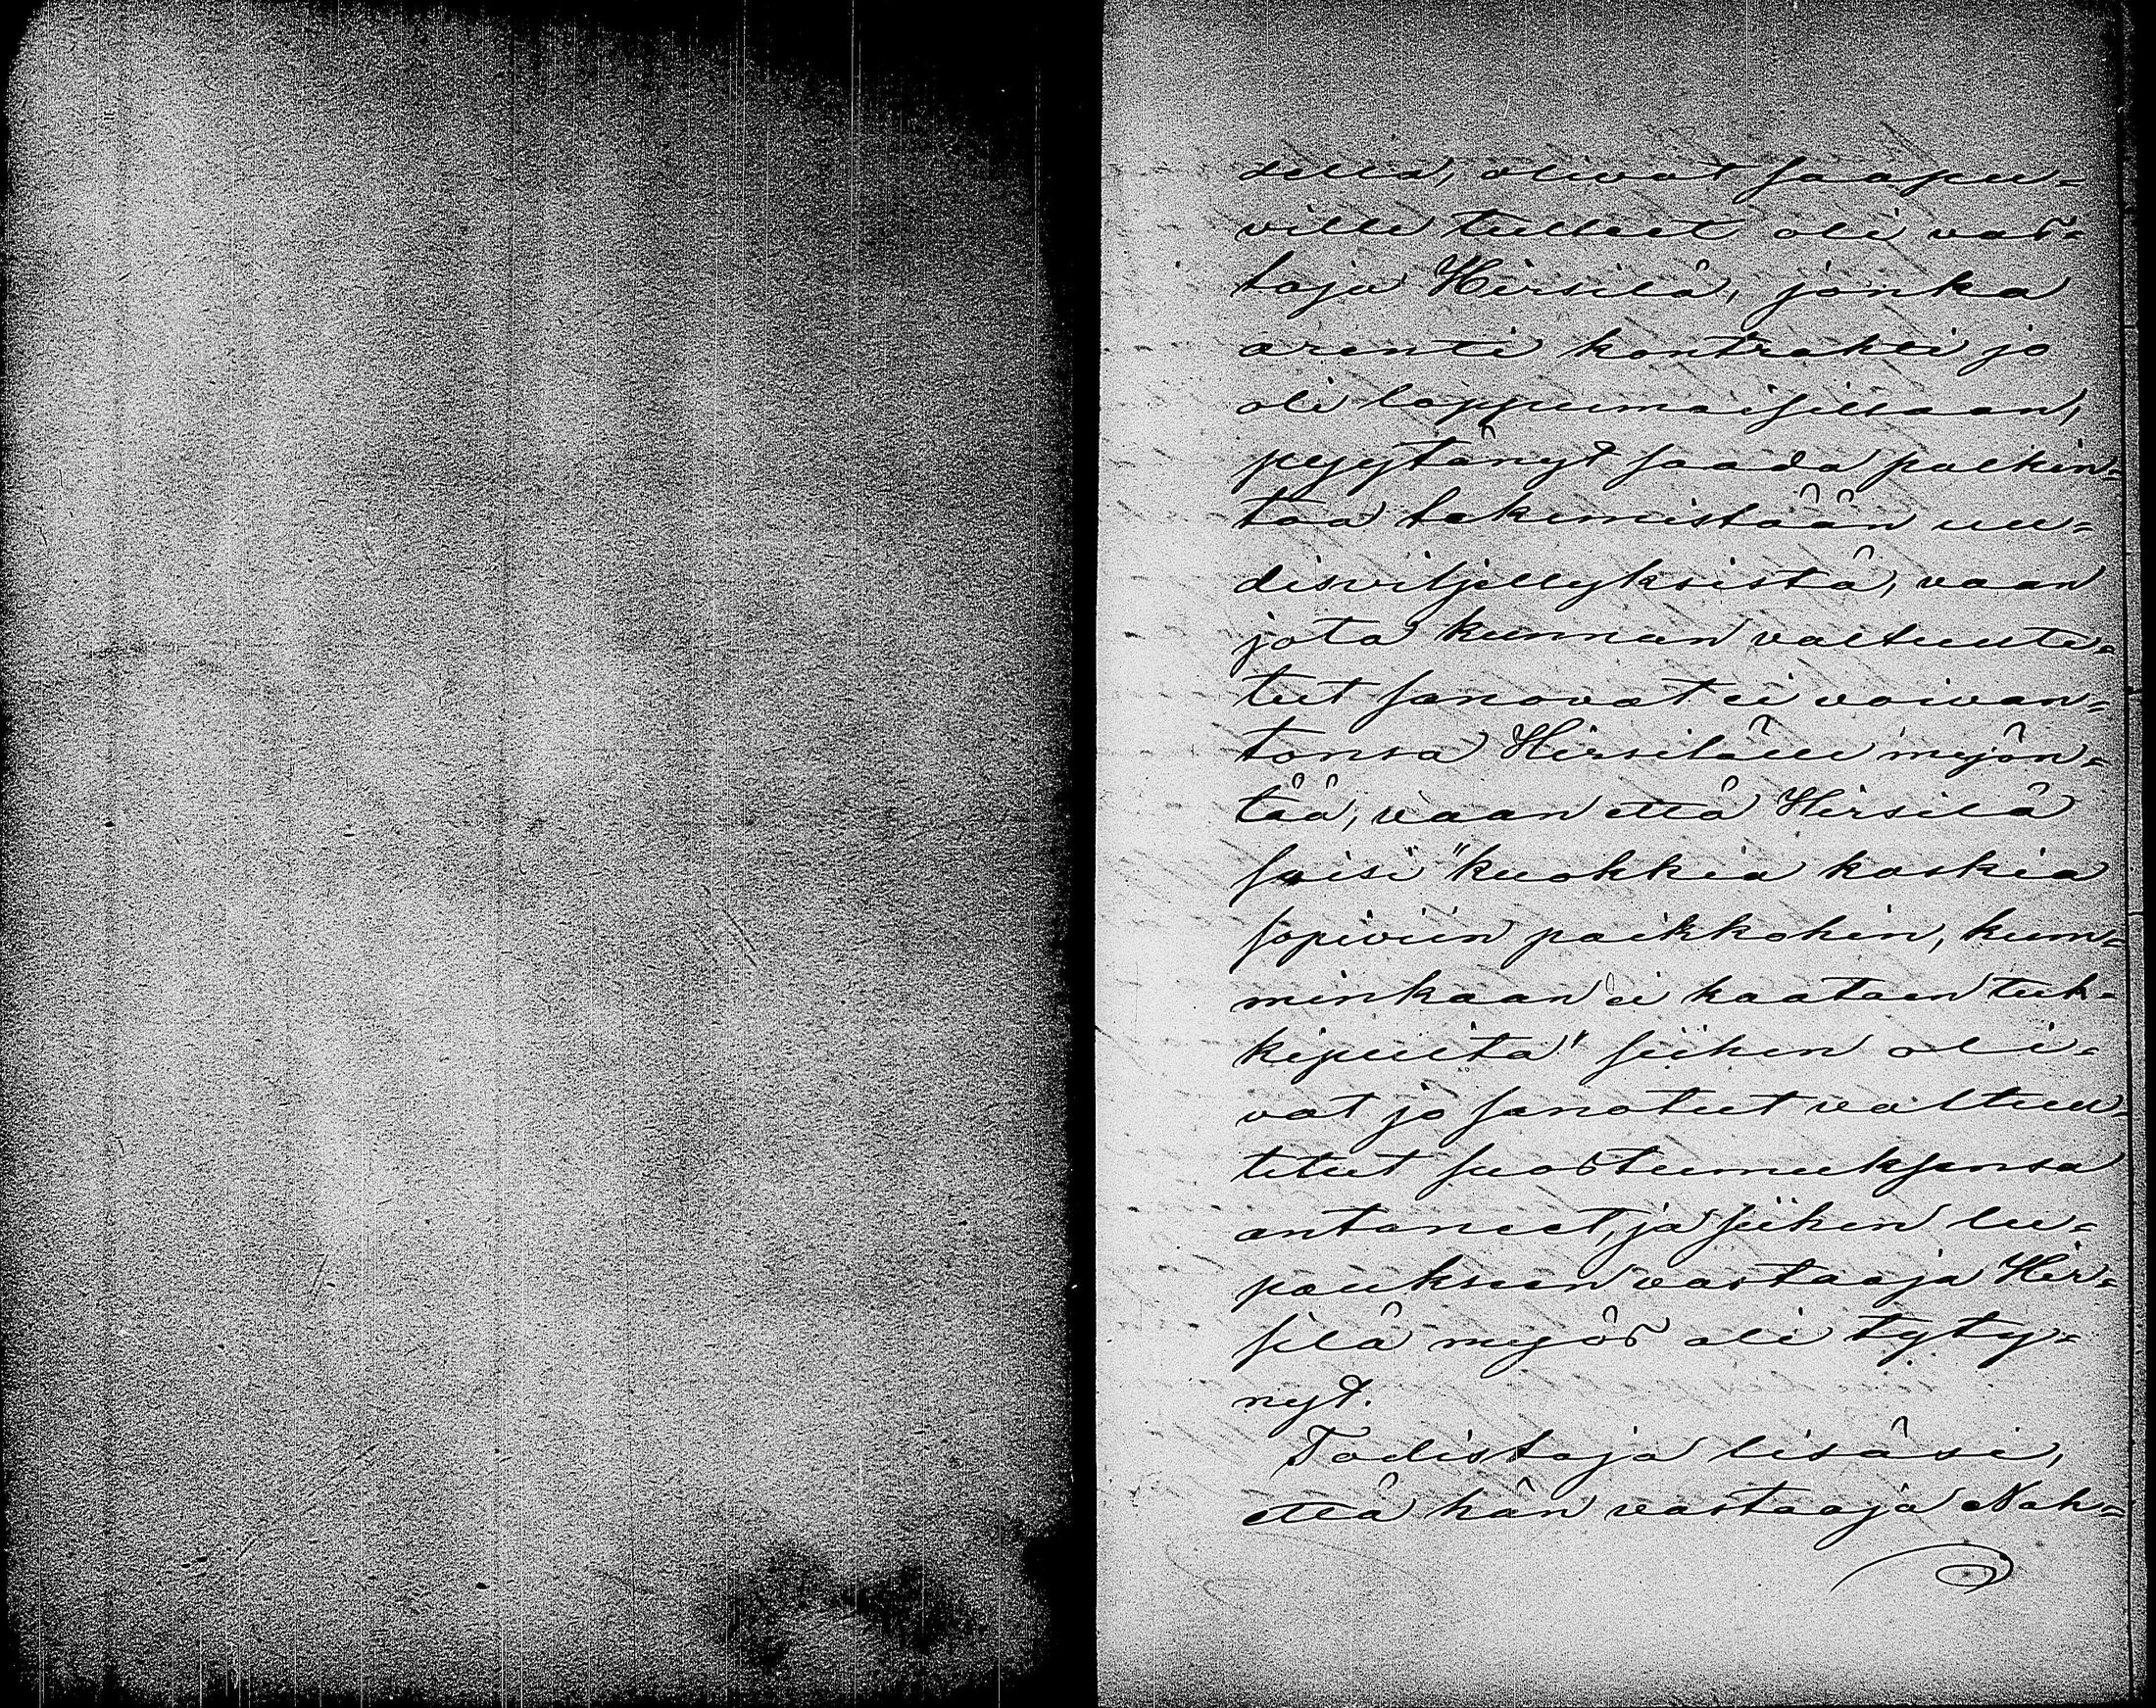 della, olivat saapu=
ville tulleet oli vas=
taja Hirsilä, jonka
arenti kontrakti jo
oli loppumaisillaan,
pyytänyt saada palkin=
toa tekemistään uu=
disviljellyksistä, vaan
jota kunnan valtuute=
tut sanovat ei voivan=
tonsa Hirsilälle myön=
tää, vaan että Hirsilä
saisi "kuokkia koskia
sopiviin paikkohin, kum=
minkaan ei kaataen tuk=
kipuita" siihen oli=
vat jo sanotut valtuu=
tetut suostumuksensa
antaneet, ja siihen lu=
paukseen vastaaja Hir=
silä myös oli tyty=
nyt.
Todistaja lisäsi,
että hän vastaaja Nah=